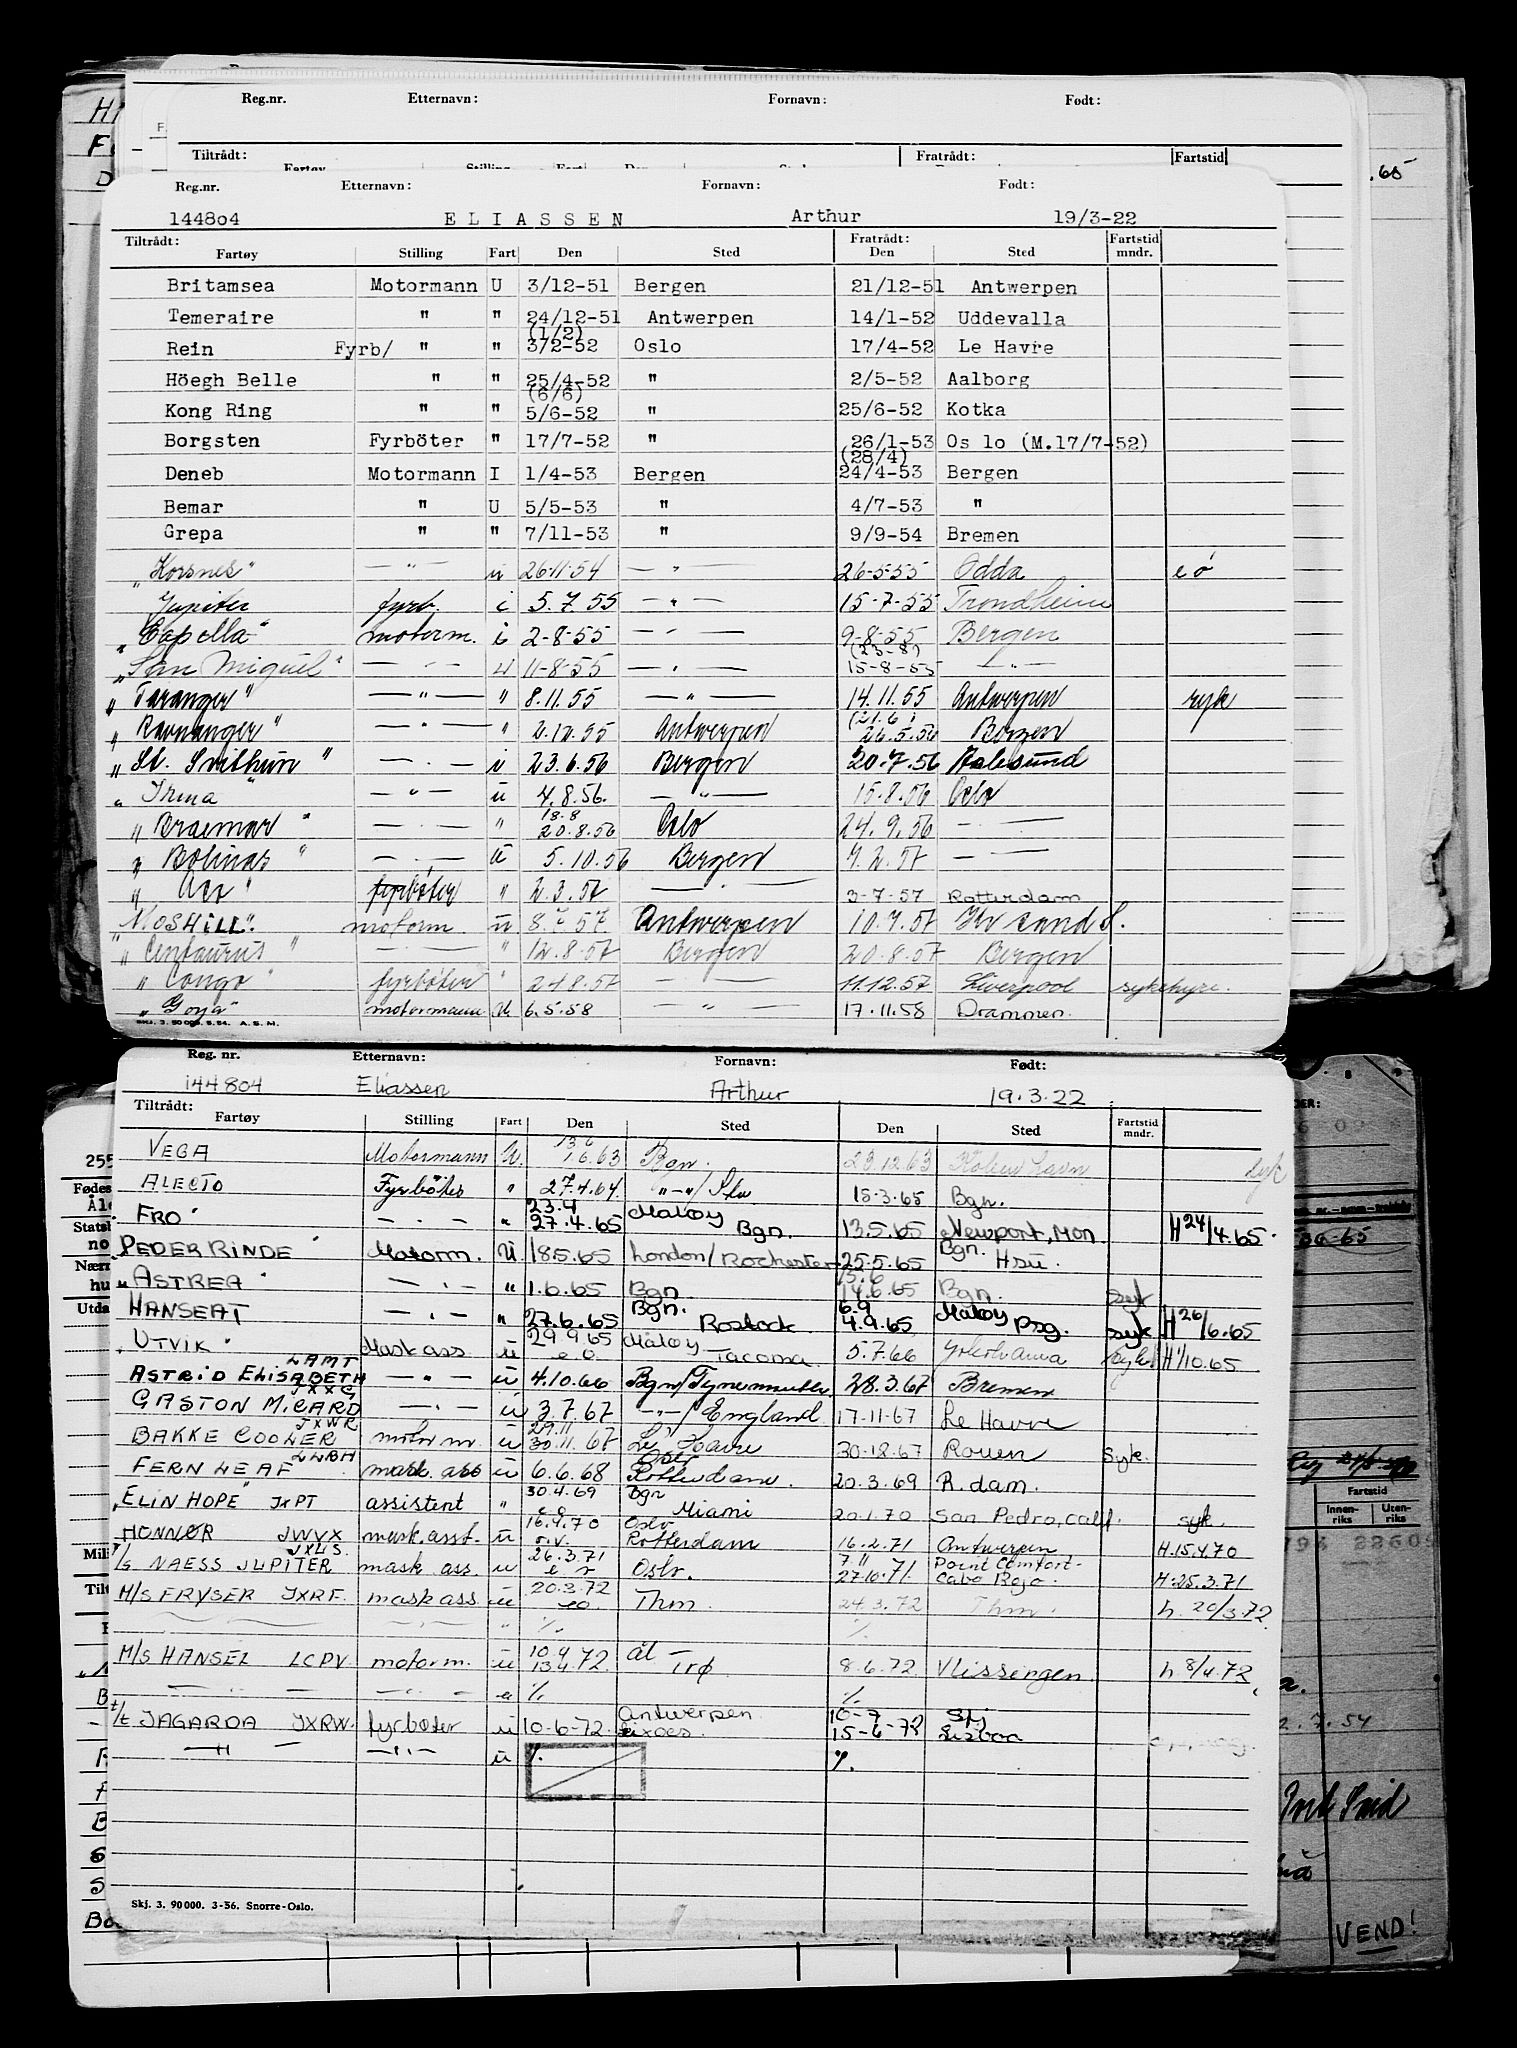 Reg.nr. Etternavn: Fornavn: Født:
Tiltrådt: Fratrådt: Fartstid
.65
Reg.nr. Etternavn: Fornavn: Født:
144804 ELIASSEN Arthur 19/3-22
Tiltrådt: Fratrådt: Fartstid
Fartøy Stilling Fart Den Sted Den Sted mndr.
Britamsea Motormann U 3/12-51 Bergen 21/12-51 Antwerpen
Temeraire " " 24/12-51 Antwerpen 14/1-52 Uddevalla
(1/2)
Rein Fyrb/ " " 3/2-52 Oslo 17/4-52 Le Havre
Höegh Belle " " 25/4-52 " 2/5-52 Aalborg
(6/6)
Kong Ring " " 5/6-52 " 25/6-52 Kotka
Borgsten Fyrböter " 17/7-52 " 26/1-53 Os lo (M.17/7-52)
(28/4)
Deneb Motormann I 1/4-53 Bergen 24/4-53 Bergen
Bemar " U 5/5-53 " 4/7-53 "
Grepa " " 7/11-53 " 9/9-54 Bremen
"Korsnes" — " — u 26-11-54 — " — 26-5-55 Odda e ó
Jupiter fyrb. i 5.7.55 — " — 15-7-55 Trondheim
"Capella" motorm. i 2-8-55 — " — 9-8-55 Bergen
(23-8)
"San Miguel" — " — u 11-8-55 — " — 15-8-55 — " —
"Taranger" — " — " 8.11.55 — " — 14.11.55 Antwerpen syk
(21.6)
"Ravnanger" — " — " 2.12.55 Antwerpen 26.5.56 Bergen
"St. Svithun" — " — i 23.6.56 Bergen 20.7.56 Aalesund
"Irma" — " — u 4.8.56. — " — 15.8.56 Oslo
18.8
"Braemar" — " — " 20.8.56 Oslo 24.9.56 — " —
"Bolinas" — " — u 5.10.56 Bergen 7.2.57 — " —
" " fyrböter " 2.3.57 — " — 3-7-57 Rotterdam
"MOSHILL" motorm. u 8.7.57 Antwerpen 10.7.57 Kr sand S.
"Centaurus" — " 12.8.57 Bergen 20.8.57 Bergen
"Congo" fyrböter " 24.8.57 — " — 11.12.57 Liverpool sykehyre.
"Goya" motormann u 6.5.58 — " — 17.11.58 Drammen.
Skj. 3. 90 000. 5.54. A.S.M.
Reg. nr. Etternavn: Fornavn: Født:
144804 Eliassen Arthur 19.3.22
Tiltrådt: Fartstid
Fartøy Stilling Fart Den Sted Den Sted mndr.
13.6
VEGA Motormann U. 1.6.63 Bgn. 23.12.63 Köbenhavn syk
ALECTO Fyrböter " 27.4.64. "-"/Sta 15.3.65 Bgn.
23.4 Måløy
FRO — " — " 27.4.65 Bgn. 13.5.65 Newport, Mon. H 24/4.65.
PEDER RINDE Motorm. U 18.5.65 London/Rochester 25.5.65 Bgn. Hsu.
15.6
"ASTREA" — " — " 1.6.65 Bgn. 14.6.65 Bgn. syk
HANSEAT — " — " 27.6.65 Bgn. Rostock 6.9 4.9.65 Måløy Psg. syk H 26/6.65
"UTVIK" LAMT Mask ass u 29.9.65 e.o. Måløy Tacoma 5.7.66 Yokohama syk H 1/10.65
ASTRID ELISABETH JXXG — " — u 4.10.66 Bgn/Tynemouth 28.3.67 Bremen
GASTON MICARD JXWR — " — u 3.7.67 — " —/England 17-11-67 Le Havre
29.11
BAKKE COOLER LLBH motorm. u 30.11.67 Le Havre 30-12-67 Rouen Syk.
FERN LEAF mask. ass u 6.6.68 Oslo Rotterdam. 20.3.69 R.dam.
"ELIN HOPE" JXPT assistent " 30.4.69 e.o. Bgn Miami 20.1.70 San Pedro, Calif syk.
HONNØR JWVX mask.asst. u 16.4.70 o.v. Oslo Rotterdam 16.2.71 Antwerpen H.15.4.70
JXLS 7.11 Point Comfort-
t/s NAESS JUPITER mask ass. u 26.3.71 e r Oslo. 27.10.71. Cabo Rojo. H.25.3.71
M/S FRYSER JXRF. mask ass u 20.3.72 eo Thm. 24.3.72 Thm. h. 20/3.72.
" ./. ./.
M/S HANSEL LCPV. motorm. u 10.4 13.4.72 ål Trø 8.6.72 Vlissingen h. 8/4.72
— " — — " — u ./. ./.
t/t JAGARDA JXRW. fyrbøter u 10-6-72. Antwerpen Leixoes. 10-7 15-6-72 Stj Lisboa
— " — — " — u ./. ./.
Skj. 3. 90000. 3-56. Snorre-Oslo.
Innenriks Utenriks
2.7.54
VEND!